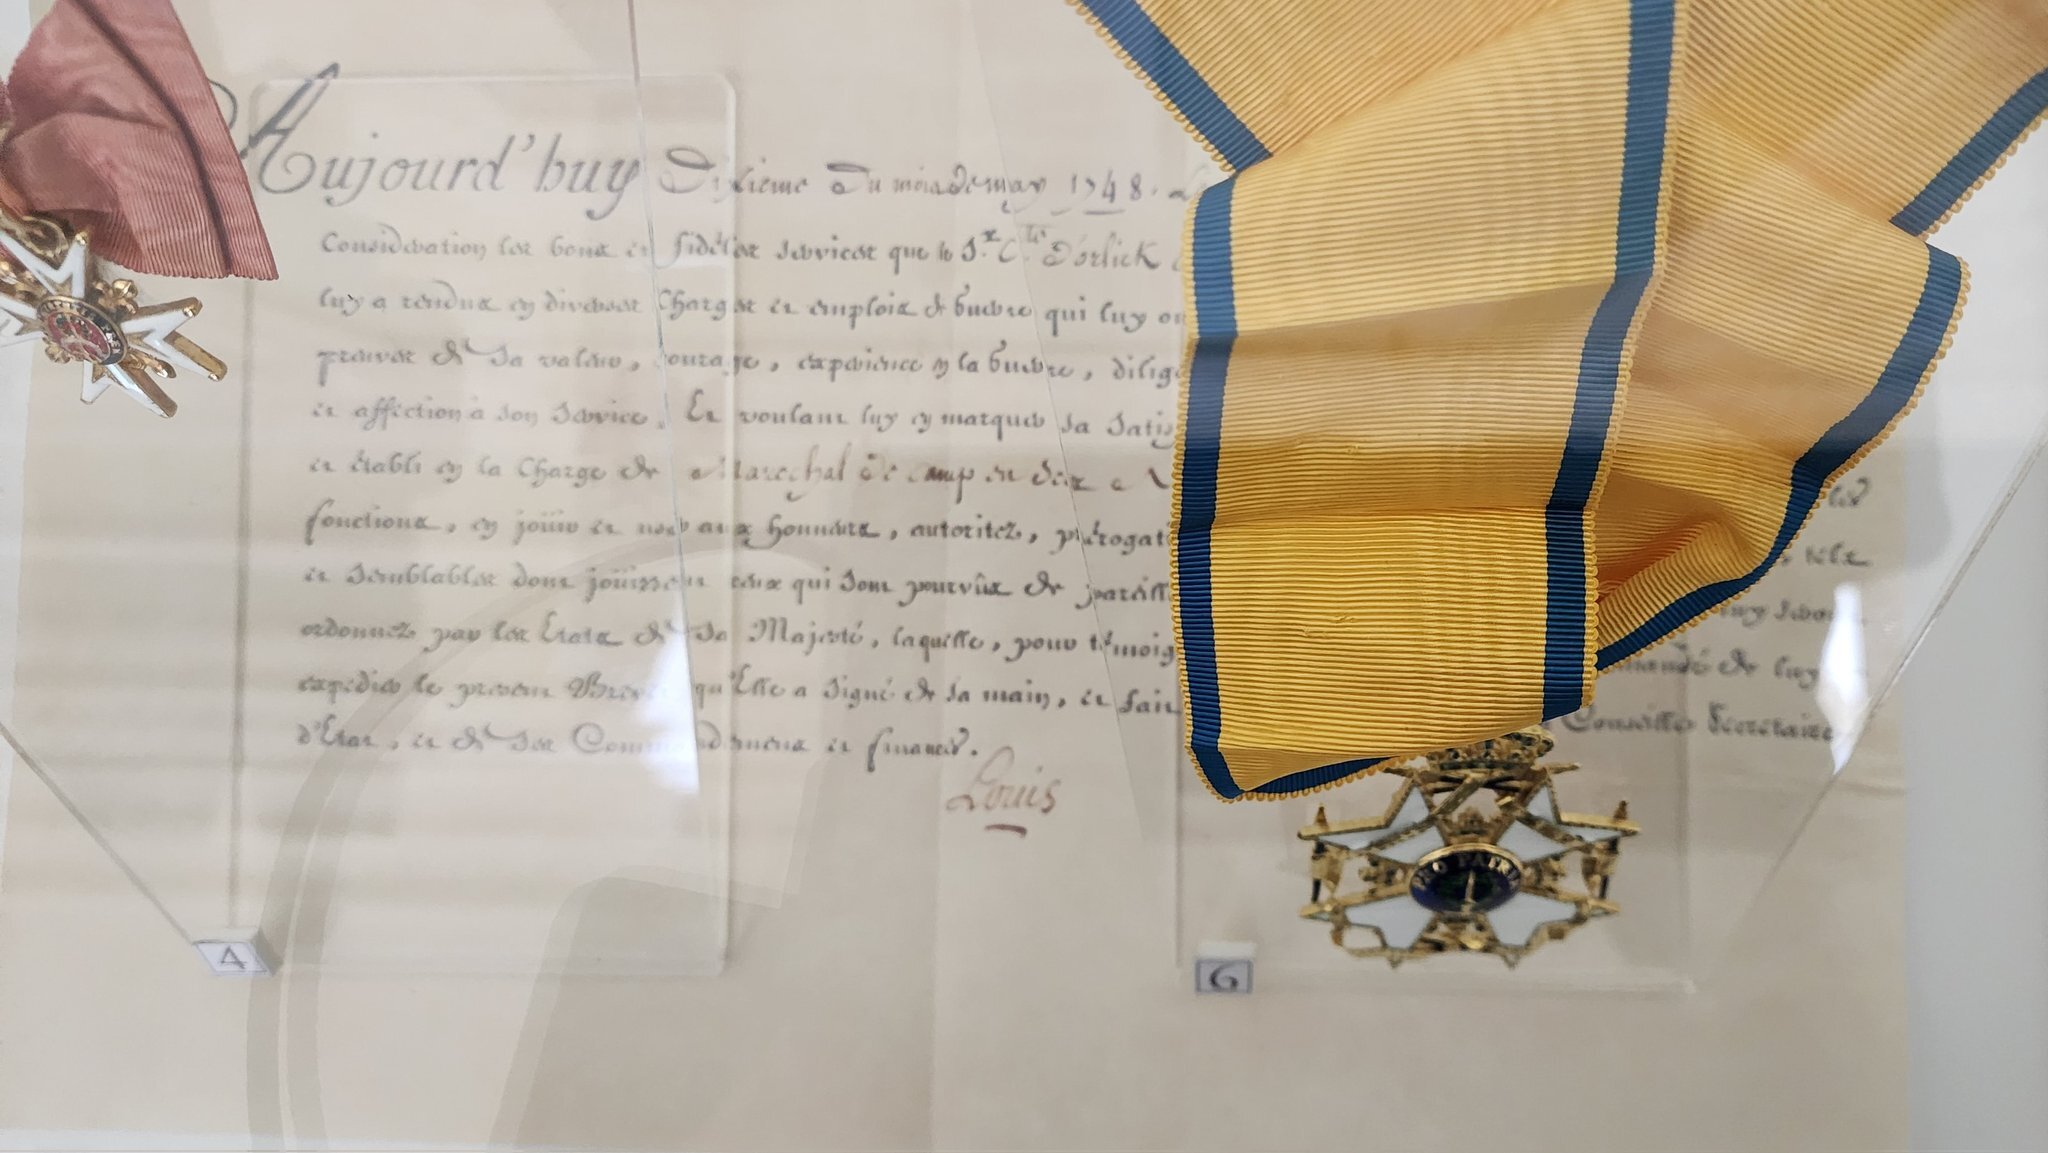 Aujourd'huy Dixieme Du mois de may 1748. Le
Consideration les bons et fideles services que le Sr. Cte. D'orlick
luy a rendus en diverses Charges et emplois de Guerre qui luy on
preuves de Sa valeur, courage, experience en la Guerre, dilige
et affection à son Service. Et voulant luy en marquer sa Satis
et établi en la Charge de Marechal de camp en ses A
fonctions, en joüir et user aux honneurs, autoritez, prérogat
et Semblables dont joüissent ceux qui Sont pourvûs de pareill
ordonnez par les Etats de Sa Majesté, laquelle, pour témoig
expedier le present Brevet qu'Elle a Signé de Sa main, et fait
mandé de luy
d'Etat, et de Ses Commandemens et finances.
Conseiller Secretaire
Louis
PRO PATRIA
4
6